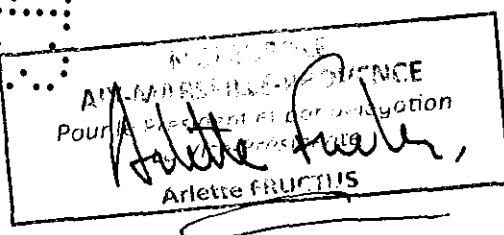 AIX-MARSEILLE-PROVENCE
Pour le Président et par délégation
Arlette Fructus,
Arlette FRUCTUS